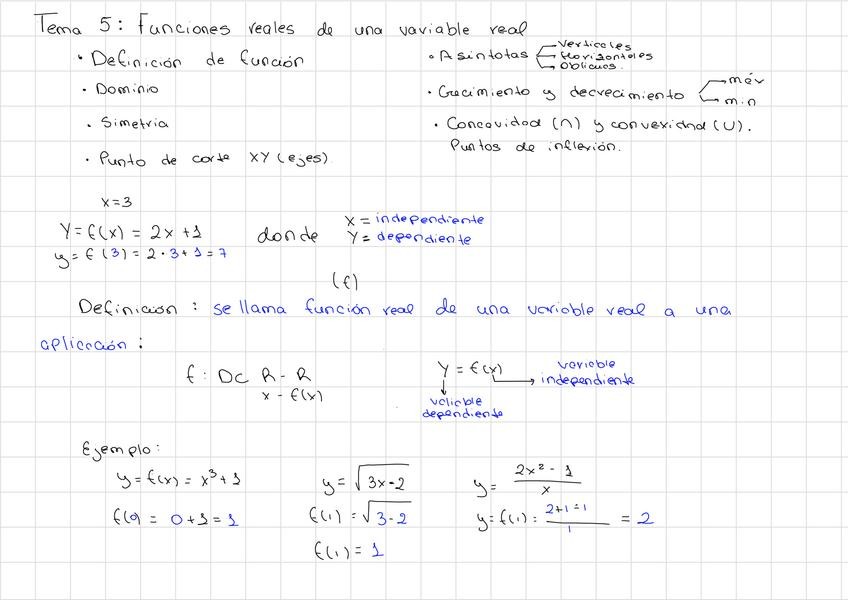 Tema 5: Funciones reales de una variable real
• Definición de función
• Dominio
• Simetria
• Punto de corte XY (ejes)
• Asintotas
Verticales
Horizontales
Oblicuas.
• Crecimiento y decrecimiento
máx
min
• Concavidad (∩) y convexidad (∪).
Puntos de inflexión.
x=3
Y= f(x) = 2x +1
y= f (3) = 2·3+1=7
donde
X = independiente
Y= dependiente
(f)
Definicion: se llama función real de una variable real a una
aplicación:
f: D⊂ R - R
x - f(x)
Y = f(x)
variable
independiente
variable
dependiente
Ejemplo:
y= f(x) = x³+1
f(0) = 0+1=1
y= √3x-2
f(1) = √3-2
f(1) = 1
y= 2x² - 1 / x
y= f(1) = 2+1=1 / 1 = 2